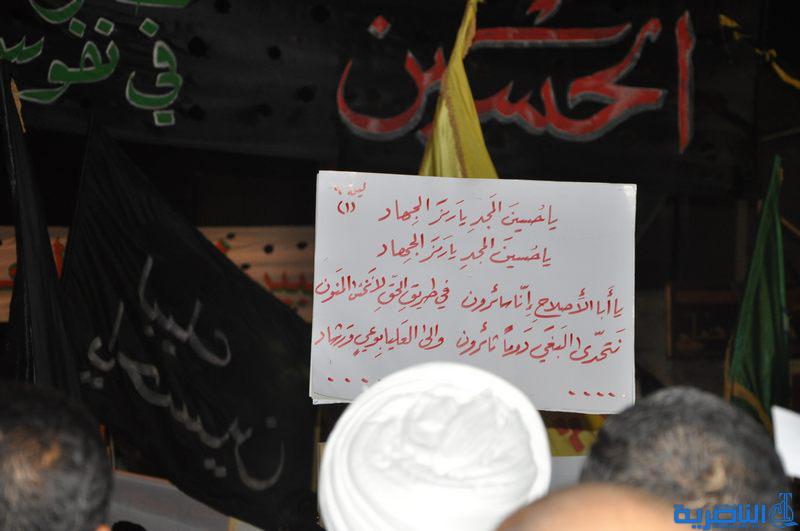 في نفوس
الحسين
ليلة ٩
(١)
يا حُسينَ المَجدِ يا رَمزَ الجِهاد
يا حُسينَ المَجدِ يا رَمزَ الجِهاد
يا أبا الأَصلاحِ إنّا سائرون في طريقِ الحَقِّ لا نَخشى المَنون
نَتحدّى البَغيَ دَوماً ثائرون وإلى العَليا بِوعيٍ ورَشاد
. . . . . . . .
الناصرية